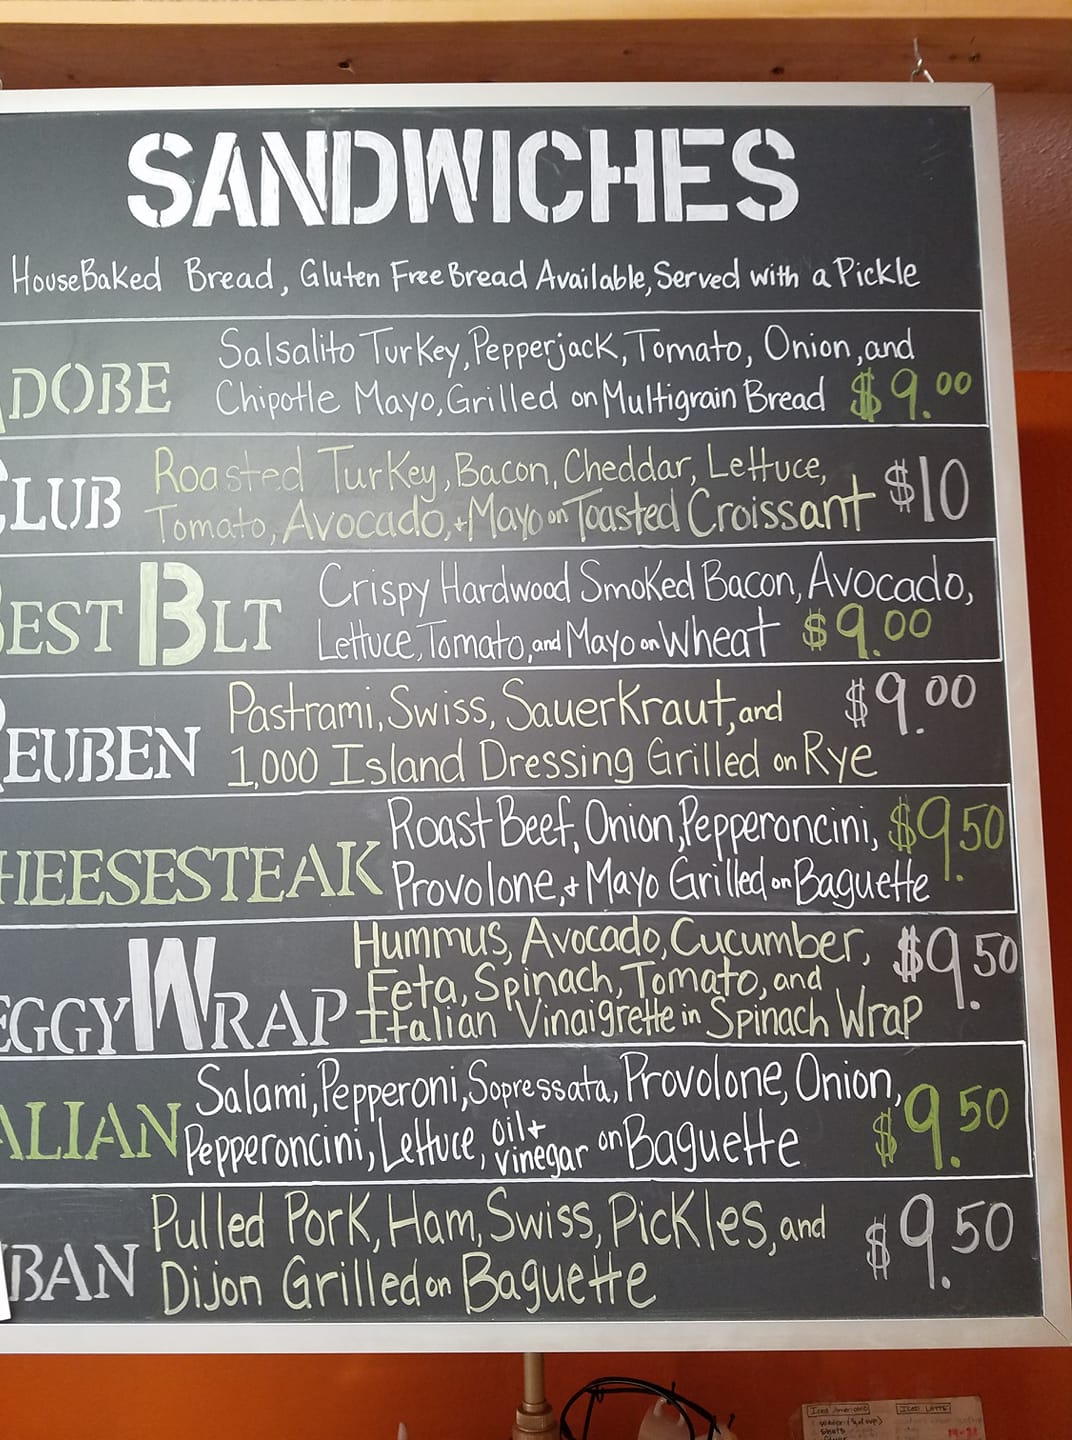 SANDWICHES
HouseBaked Bread, Gluten Free Bread Available, Served with a Pickle
ADOBE Salsalito Turkey, Pepperjack, Tomato, Onion, and
Chipotle Mayo, Grilled on Multigrain Bread $9.00
CLUB Roasted Turkey, Bacon, Cheddar, Lettuce, $10
Tomato, Avocado, + Mayo on Toasted Croissant
BEST BLT Crispy Hardwood Smoked Bacon, Avocado,
Lettuce, Tomato, and Mayo on Wheat $9.00
REUBEN Pastrami, Swiss, Sauerkraut, and $9.00
1,000 Island Dressing Grilled on Rye
HEESESTEAK Roast Beef, Onion, Pepperoncini, $9.50
Provolone, + Mayo Grilled on Baguette
EGGY WRAP Hummus, Avocado, Cucumber, $9.50
Feta, Spinach, Tomato, and
Italian Vinaigrette in Spinach Wrap
ALIAN Salami, Pepperoni, Sopressata, Provolone, Onion, $9.50
Pepperoncini, Lettuce, oil + vinegar on Baguette
BAN Pulled Pork, Ham, Swiss, Pickles, and $9.50
Dijon Grilled on Baguette
Iced Americano
ICED LATTE